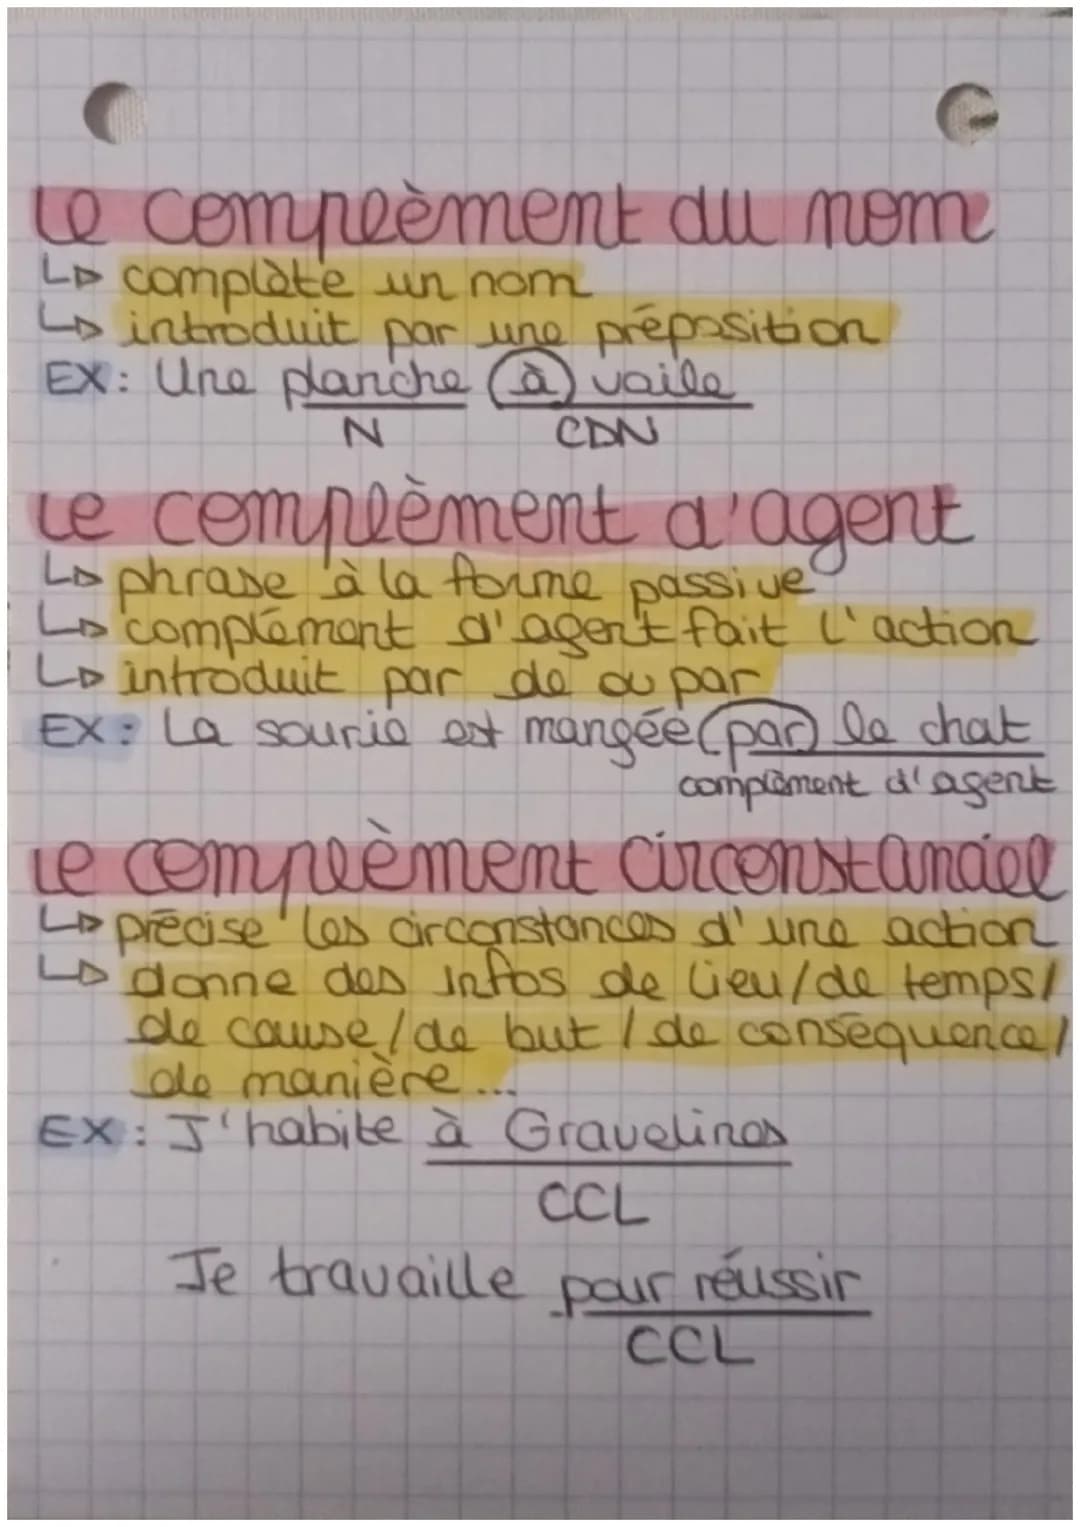 Le complèment du nom
↳ complète un nom
↳ introduit par une préposition
EX: Une planche à voile
N CDN
Le complèment d'agent
↳ phrase à la forme passive
↳ complément d'agent fait l'action
↳ introduit par de ou par
EX: La souris est mangée par le chat
complément d'agent
Le complèment circonstanciel
↳ précise les circonstances d'une action
↳ donne des infos de lieu/de temps/
de cause/de but/de conséquence/
de manière...
EX: J'habite à Gravelines
CCL
Je travaille pour réussir
CCL